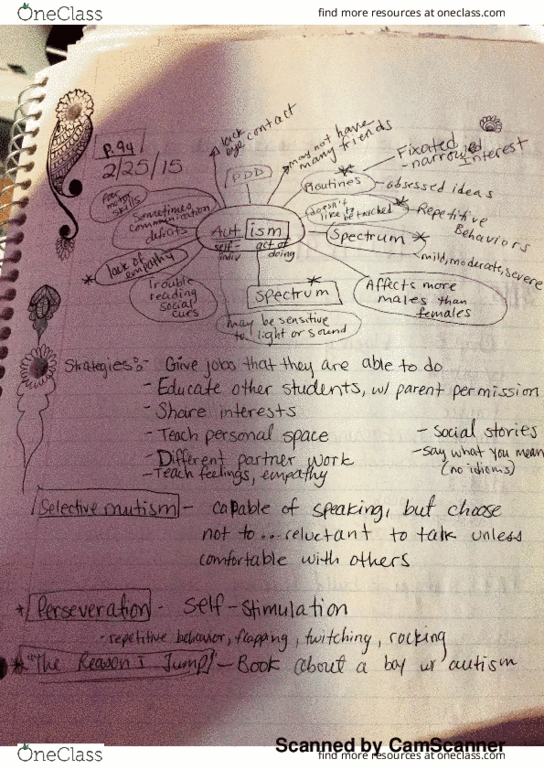 OneClass
find more resources at oneclass.com
p.94
2/25/15
lack eye contact
may not have many friends
PDD
Fixated
- narrowed interest
Routines
- obsessed ideas
Poor motor skills
Sometimes communication deficits
Aut ism
self-
indiv
act of
doing
doesn't like to be touched
Repetitive Behaviors
Spectrum
mild, moderate, severe
lack of empathy
Trouble reading social cues
Spectrum
Affects more males than females
may be sensitive to light or sound
Strategies:- Give jobs that they are able to do
- Educate other students, w/ parent permission
- Share interests
- Teach personal space
- Social stories
- Different partner work
- Say what you mean
(no idioms)
- Teach feelings, empathy
Selective mutism - capable of speaking, but choose
not to... reluctant to talk unless
comfortable with others
* Perseveration - self-stimulation
- repetitive behavior, flapping, twitching, rocking
* "The Reason I Jump" - Book about a boy w/ autism
Scanned by CamScanner
OneClass
find more resources at oneclass.com